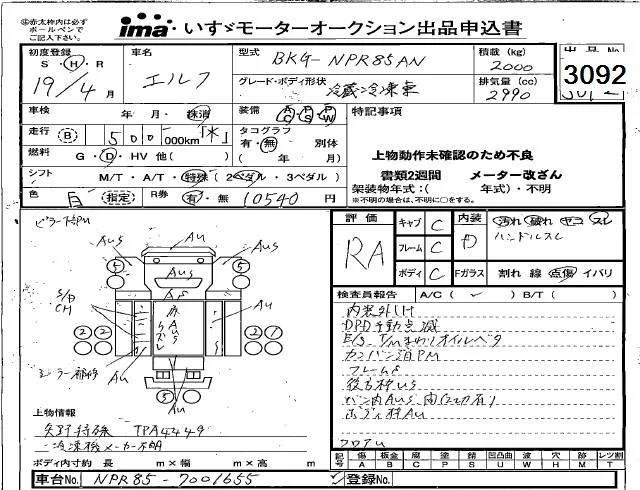 赤太枠内は必ず
ボールペンで
ご記入下さい。
ima いすゞモーターオークション出品申込書
初度登録 S H R 19/4月
車名 エルフ
型式 BKG-NPR85AN
積載 (kg) 2000
出品No 3092
グレード・ボディ形状 冷蔵冷凍車
排気量 (cc) 2990
車検 年 月・抹消
装備 AC PS PW
特記事項
走行 B 500 000km「*」
タコグラフ 有・無 別体
( 年 月)
燃料 G・D・HV 他( )
上物動作未確認のため不良
書類2週間 メーター改ざん
シフト M/T・A/T・特殊 (2ペダル・3ペダル)
架装物年式:( 年式)・不明
※不明の場合は、不明に○をする。
色 白 指定 R券 有・無 10540 円
評価 RA
キャブ C 内装 D 汚れ 破れ ヤコ スレ
フレーム C ハンドルスレ
ボディ C Fガラス 割れ 線 点傷 イバリ
検査員報告 A/C ( ✓ ) B/T ( )
内装外しけ
DPD手動点滅
E/S、T/Mまわりオイルベタ
カンバン消PM
フレームS
後古枠US
ボディ枠AU
フロアU
ピラー下部PU
AUS
AU
AUS
5
5
AUS
AS
S/D
CH
AU
AU
2 2
2 2
ミラー補修
AU
AU
5
上物情報
矢野特殊 TPA4449
冷凍機メーカー不明
ボディ内寸約 長 m×幅 m×高 m
記号 傷 A 板金 B 腐 C 塗 P 錆 S 凹凸曲 U 波 W 穴 H 跡 M レツ割 T
車台No. NPR85-7001655
登録No.